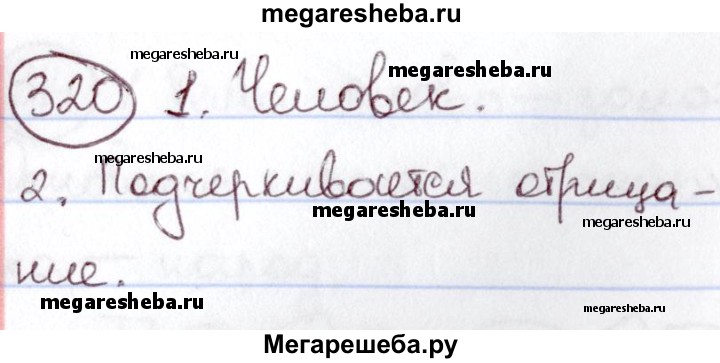 megaresheba.ru
megaresheba.ru
megaresheba.ru
320 1. Человек.
megaresheba.ru
megaresheba.ru
2. Подчеркивается отрица-
megaresheba.ru
megaresheba.ru
ние.
megaresheba.ru
megaresheba.ru
Мегарешеба.ру